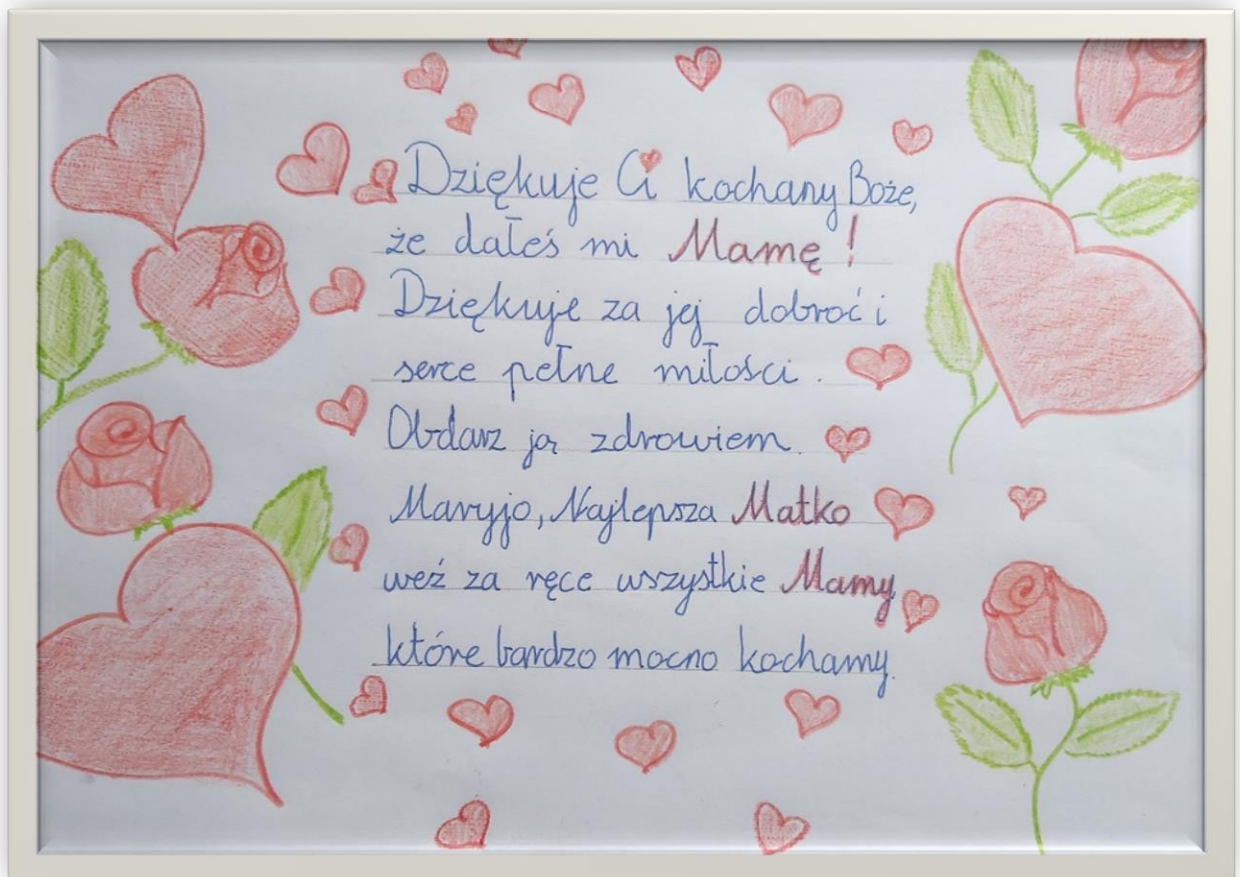 Dziękuje Ci kochany Boże,
że dałeś mi Mamę!
Dziękuje za jej dobroć i
serce pełne miłości.
Obdarz ją zdrowiem.
Maryjo, Najlepsza Matko
weź za ręce wszystkie Mamy,
które bardzo mocno kochamy.